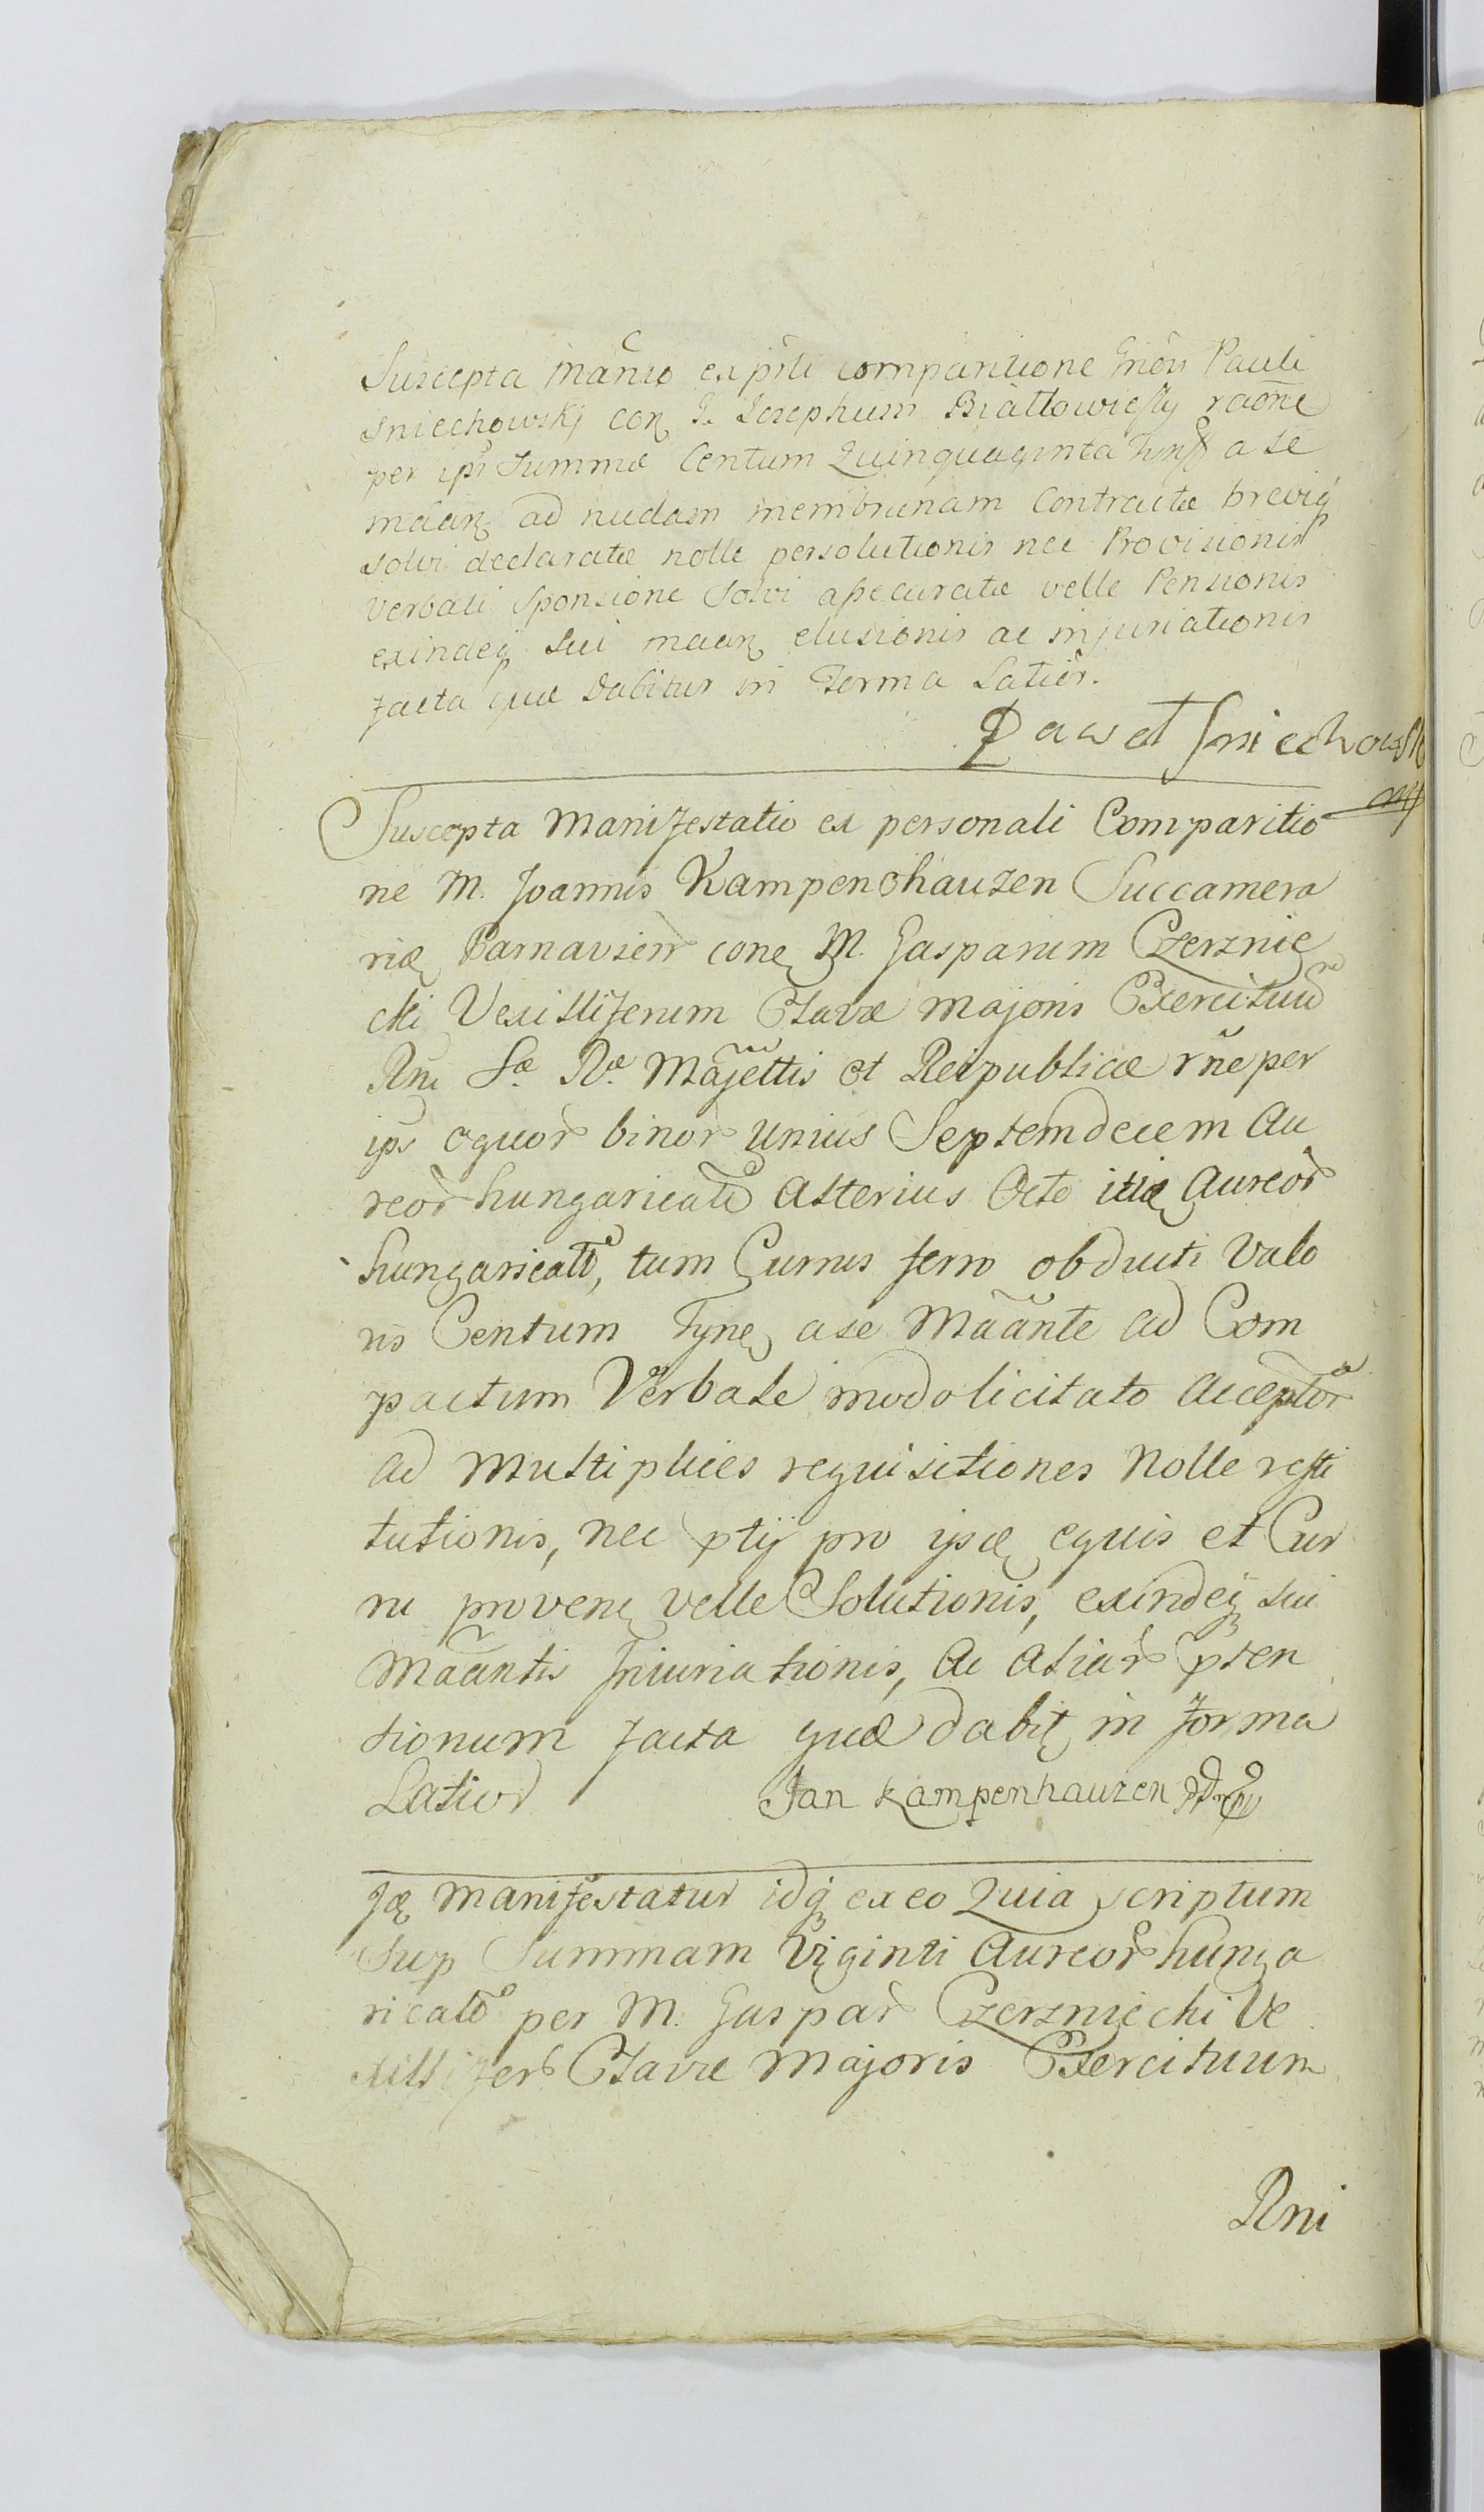 Suscepta Mãnio ex pĩli comparitione Gnẽri Pauli
Sniechowskj con̨ G. Josephum Białłowiesky raõne
per ips̃ Summæ Centum Quinquaginta Tynf̃ a se
mãan̨ ad nudam membranam Contractæ brevią
solvi declaratæ nolle persolutionis nec Provisionis
Verbali Sponsione Solvi assecuratæ velle Pensionis
exindeq̨ Sui maan̨ elusionis ac injuriationis
facta quæ Dabitur in Forma Latiõr.
Paweł Sniechowsk
mp
Suscepta Manifestatio ex personali Comparitio
ne M. Joannis Kampenchauzen Succamera
rią Parnavien̄ cone̢ M. Gasparum Czerznie
cki Vexilliferum Clavæ majoris Exercituũ
Rñi Sæ Ræ Majẽttis et Reipublicæ rñe per
ips equor̃ binor̃ unius Septemdecem Au
reor̃ hungaricalĩ alterius Octo itią Aureor̃
hungaricalĩ, tum Currus ferro obducti Valo
ris Centum Tyne̢ a se Mãante ad Com
pactum Verbale modo licitato acceptor̃
ad Multiplices requisitiones Nolle resti
tutionis, nec ptij pro ipsą equis et Cur
ru provene̢ velle Solutionis, exindeq̨ sui
Mãantis Iniuriationis, ac aliar̃ pten
tionum facta quæ dabit̨ in forma
Latior̃ Jan Kampenhauzen
Ją Manifestatur idq̨ ex eo Quia scriptum
Sup Summam Viginti Aureor̃ hunga
ricalĩ per M. Gaspar̃ Czerzniecki Ve
xillifer̃ Clavæ Majoris Exercituum
Rni